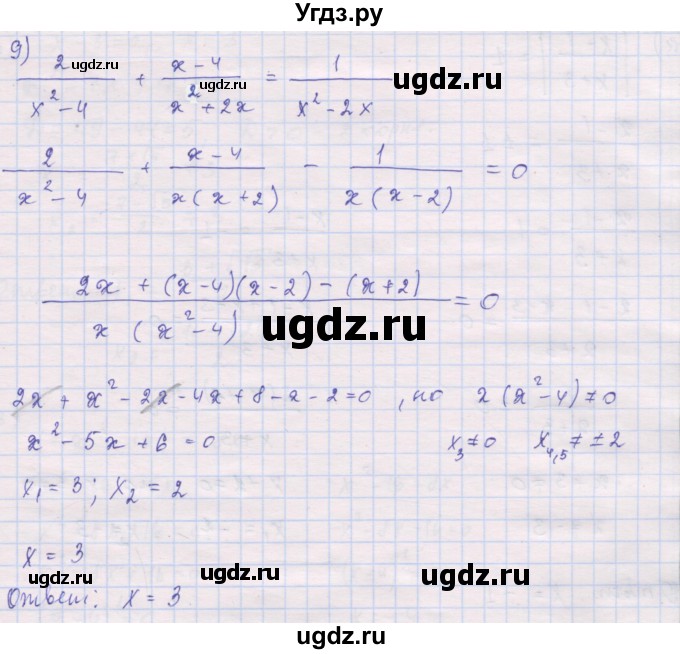 Угдз.ру
9)
2/(x² - 4) + (x - 4)/(x² + 2x) = 1/(x² - 2x)
ugdz.ru ugdz.ru ugdz.ru
2/(x² - 4) + (x - 4)/(x(x + 2)) - 1/(x(x - 2)) = 0
(2x + (x - 4)(x - 2) - (x + 2))/(x(x² - 4)) = 0
ugdz.ru
2x + x² - 2x - 4x + 8 - x - 2 = 0, но x(x² - 4) ≠ 0
x² - 5x + 6 = 0 x₃ ≠ 0 x₄,₅ ≠ ± 2
x₁ = 3; x₂ = 2
x = 3
ugdz.ru ugdz.ru ugdz.ru
Ответ: x = 3
ugdz.ru